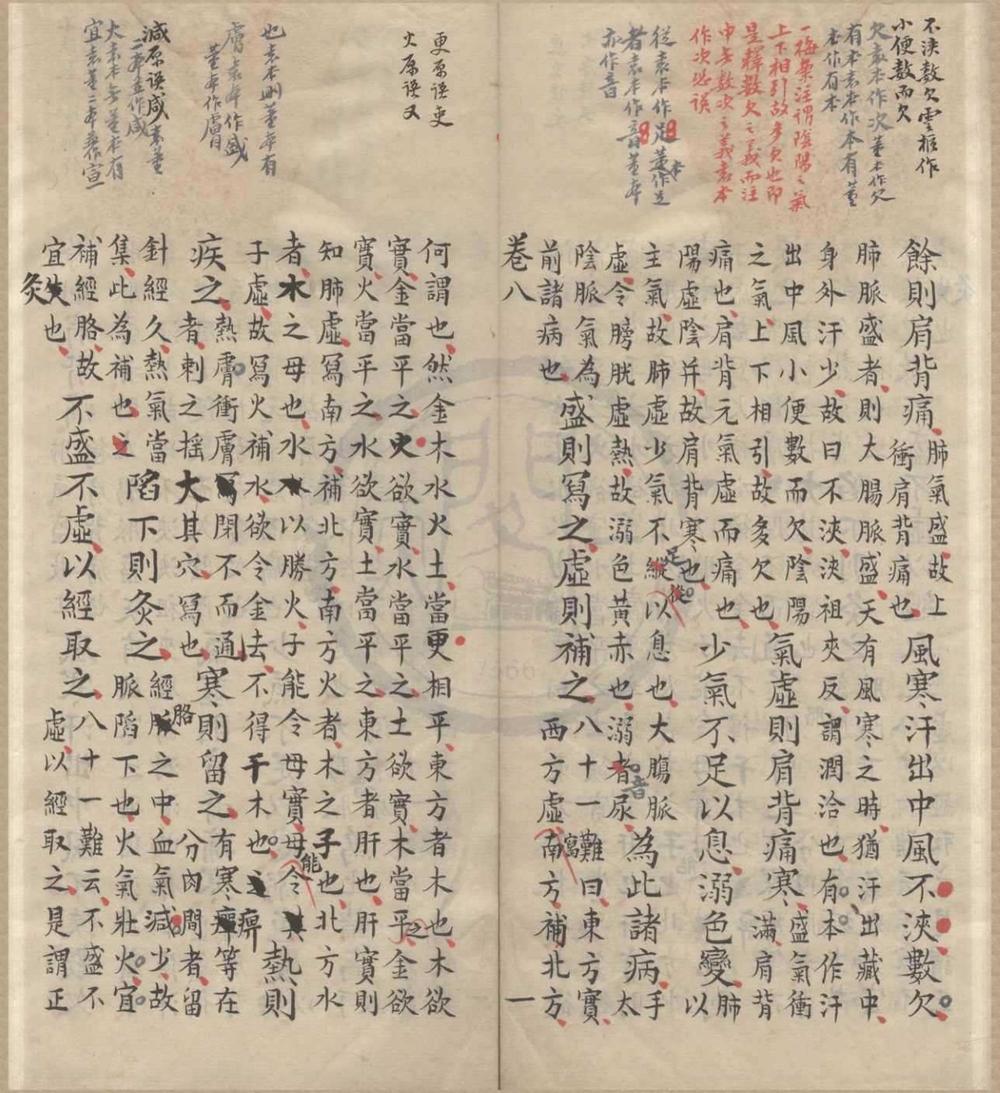 不浹數欠靈樞作
小便數而欠
欠袁本作次董本作欠
有本袁本作本有董
本作有本
一梅案注謂陰陽之氣
上下相引故多欠也即
是釋數欠之義而注
中無數次之義袁本
作次恐誤
從袁本作足董作足
者袁本作音董本
亦作音
餘則肩背痛肺氣盛故上衝肩背痛也風寒汗出中風不浹數欠
肺脈盛者則大腸脈盛天有風寒之時猶汗出藏中
身外汗少故曰不浹浹祖夾反謂潤洽也有本作汗
出中風小便數而欠陰陽
之氣上下相引故多欠也氣虛則肩背痛寒盛氣衝滿肩背
痛也肩背元氣虛而痛也
陽虛陰并故肩背寒也少氣不足以息溺色變肺以
主氣故肺虛少氣不縱足從以息也大腸脈
虛令膀胱虛熱故溺色黃赤也溺者音尿為此諸病手太
陰脈氣為
前諸病也盛則寫之虛則補之八十一難曰東方實
西方虛寫南方補北方
卷八 一
更原誤吏
火原誤又
也袁本刪董本有
膚袁本作盛
董本作膚
減原誤咸袁董
二本並作減
大袁本無董本有
宜袁董二本並作宣
何謂也然金木水火土當更相平東方者木也木欲
實金當平之火欲實水當平之土欲實木當平之金欲
實火當平之水欲實土當平之東方者肝也肝實則
知肺虛寫南方補北方南方火者木之子也北方水
者水之母也水以勝火子能令母實母能令
子虛故寫火補水欲令金去不得干木也熱則
疾之熱膚衝膚閉不而通
者刺之搖大其穴寫也寒則留之有寒痹等在
分肉間者留
針經久熱氣當
集此為補也之陷下則灸之經胳之中血氣減少故
脈陷下也火氣壯火宜
補經胳故
宜灸也不盛不虛以經取之八十一難云不盛不
虛以經取之是謂正